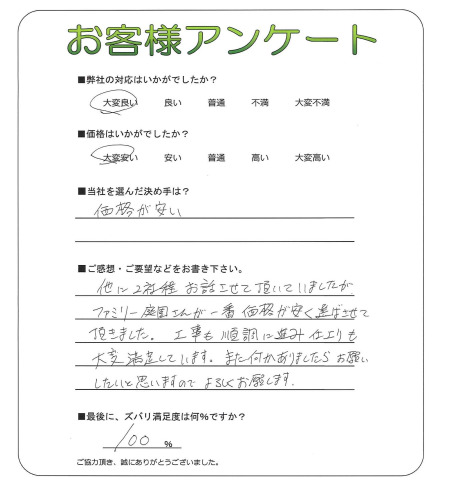 お客様アンケート
■弊社の対応はいかがでしたか？
大変良い 良い 普通 不満 大変不満
■価格はいかがでしたか？
大変安い 安い 普通 高い 大変高い
■当社を選んだ決め手は？
価格が安い
■ご感想・ご要望などをお書き下さい。
他に2社程 お話させて頂いていましたが
ファミリー庭園さんが一番 価格が安く選ばせて
頂きました。 工事も順調に進み 仕上りも
大変満足しています。また何かありましたらお願い
したいと思いますので よろしくお願します。
■最後に、ズバリ満足度は何％ですか？
100 ％
ご協力頂き、誠にありがとうございました。